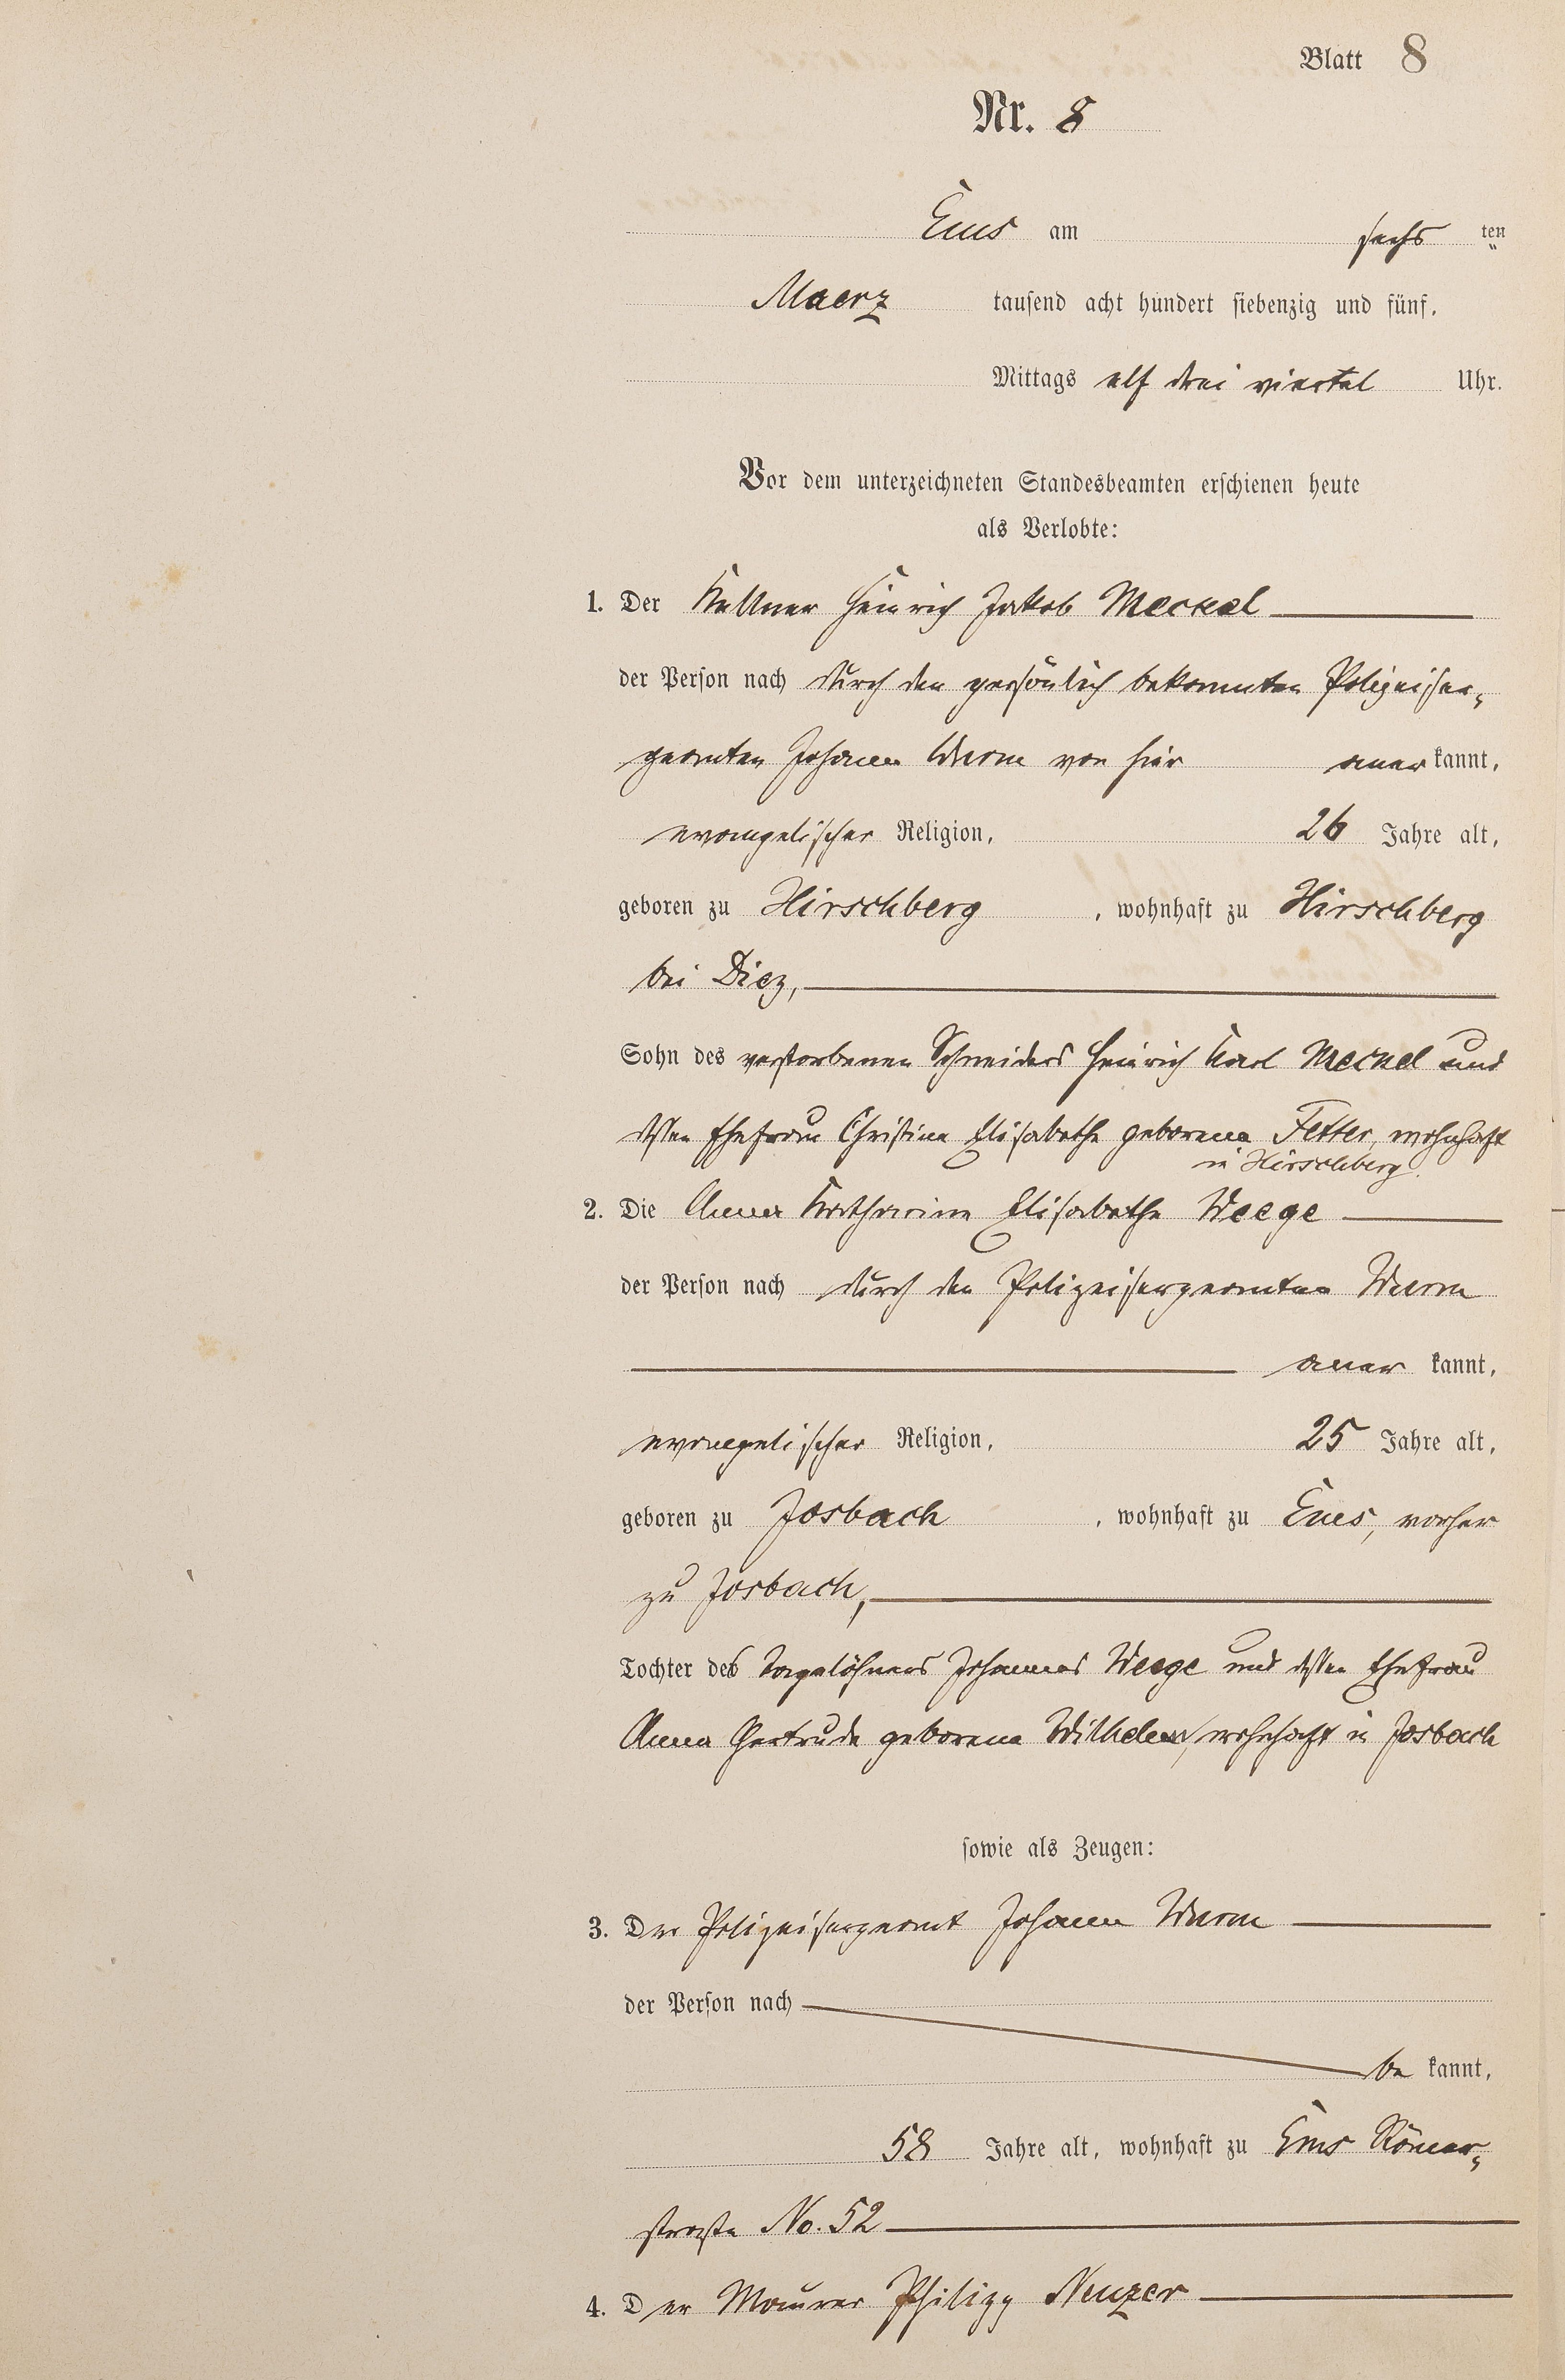 Blatt 8
Nr. 8
Ems am sechs ten
Maerz tausend acht hundert siebenzig und fünf,
Mittags elf drei viertel Uhr.
Vor dem unterzeichneten Standesbeamten erschienen heute
als Verlobte:
1. Der Kellner Heinrich Jakob Meckel
der Person nach durch den persönlich bekannten Polizeiser-
geanten Johann Wurm von hier anerkannt,
evangelischer Religion, 26 Jahre alt,
geboren zu Hirschberg, wohnhaft zu Hirschberg
bei Diez,
Sohn des verstorbenen Schneiders Heinrich Karl Meckel und
dessen Ehefrau Christine Elisabethe geborene Fetter, wohnhaft
in Hirschberg.
2. Die Anna Katharine Elisabethe Weege
der Person nach durch den Polizeisergeanten Wurm
anerkannt,
evangelischer Religion, 25 Jahre alt,
geboren zu Josbach, wohnhaft zu Ems, vorher
zu Josbach,
Tochter des Tagelöhners Johannes Weege und dessen Ehefrau
Anna Gertrude geborene Wilhelm, wohnhaft in Josbach
sowie als Zeugen:
3. Der Polizeisergeant Johann Wurm
der Person nach
bekannt,
58 Jahre alt, wohnhaft zu Ems Römer-
straße No. 52
4. Der Maurer Philipp Neuzer